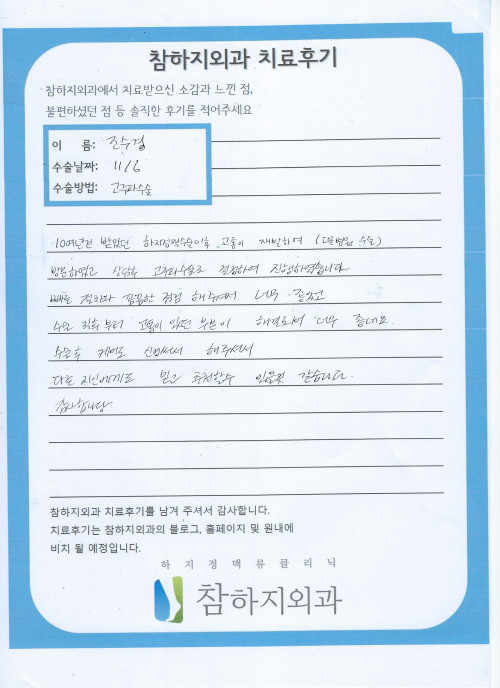 참하지외과 치료후기
참하지외과에서 치료받으신 소감과 느낀 점,
불편하셨던 점 등 솔직한 후기를 적어주세요
이 름: 조수경
수술날짜: 11/6
수술방법: 고주파수술
10여년전 받았던 하지정맥수술이후 고통이 재발하여 (다른병원 수술)
방문하였고 상담후 고주파수술로 결정하여 진행하였습니다
빠른 절차와 꼼꼼한 점검 해주셔서 너무 좋았고
수술 직후부터 고통이 있던 부분이 해결되어 너무 좋네요.
수술후 케어도 신경써서 해주셔서
다른 지인에게도 믿고 추천할수 있을것 같습니다.
감사합니다
참하지외과 치료후기를 남겨 주셔서 감사합니다.
치료후기는 참하지외과의 블로그, 홈페이지 및 원내에
비치 될 예정입니다.
하지정맥류클리닉
참하지외과